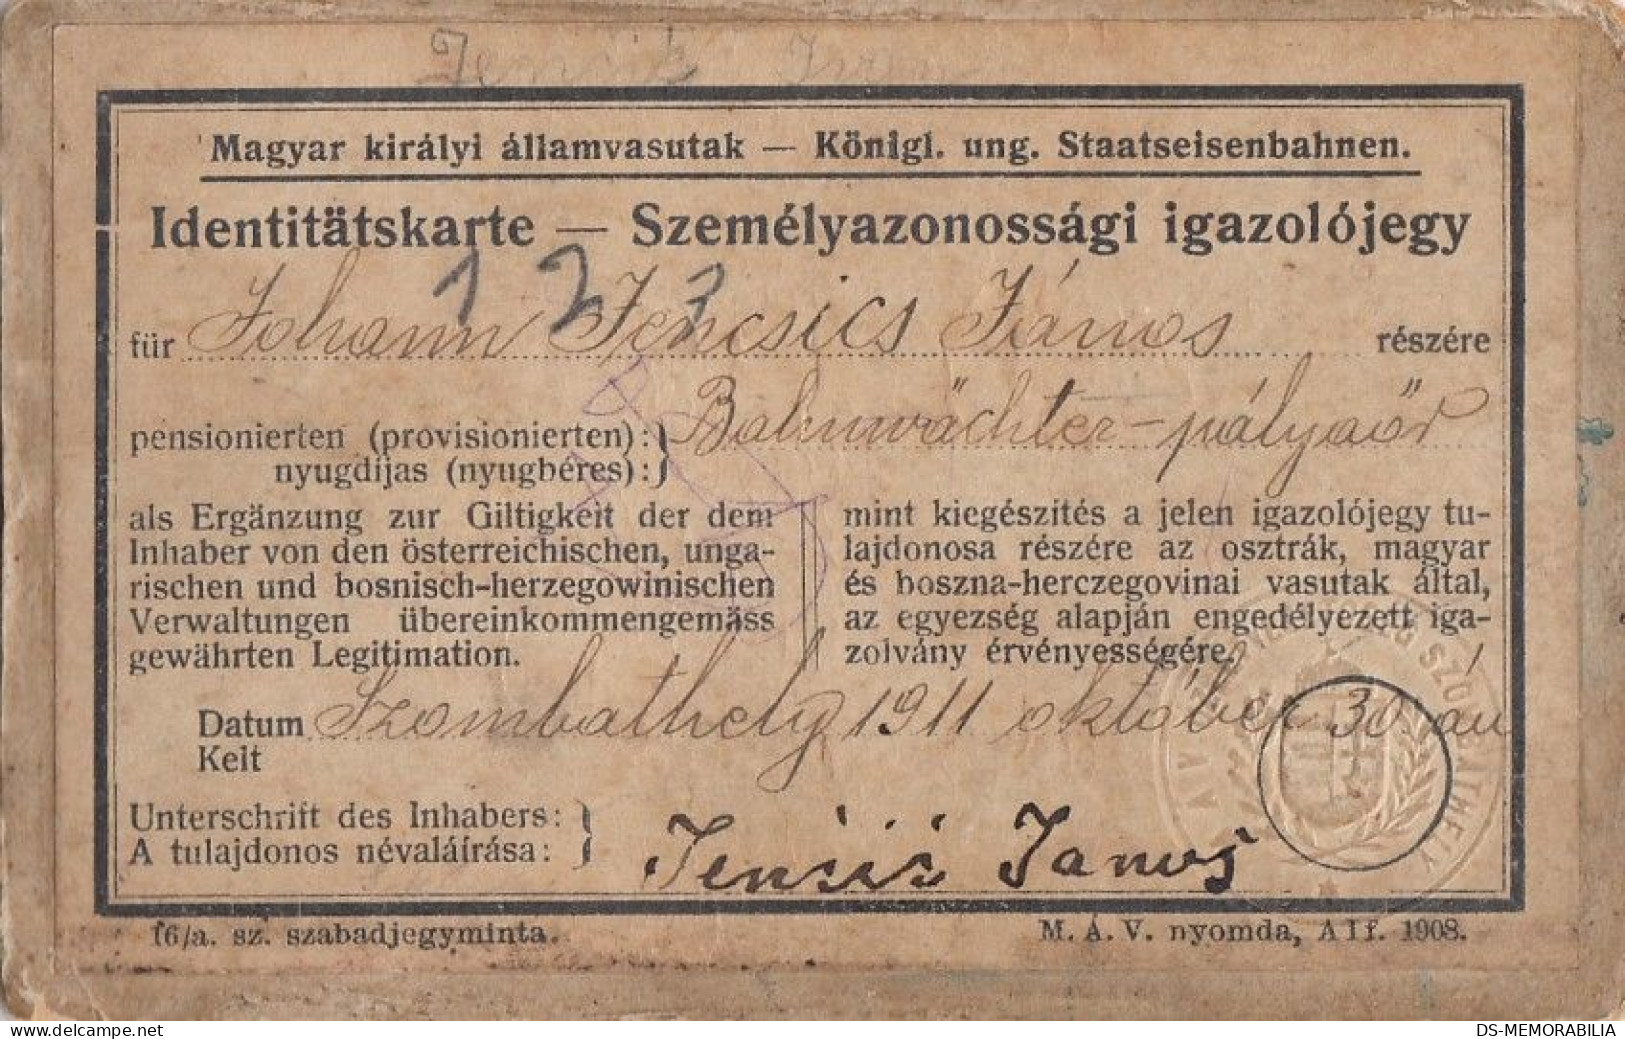 Magyar királyi államvasutak — Königl. ung. Staatseisenbahnen.
Identitätskarte — Személyazonossági igazolójegy
1 2 3
für Johann Jencsics János részére
pensionierten (provisionierten): Bahnwächter - pályaőr
nyugdijas (nyugbéres):
als Ergänzung zur Giltigkeit der dem
Inhaber von den österreichischen, unga-
rischen und bosnisch-herzegowinischen
Verwaltungen übereinkommengemäss
gewährten Legitimation.
mint kiegészítés a jelen igazolójegy tu-
lajdonosa részére az osztrák, magyar
és boszna-herczegovinai vasutak által,
az egyezség alapján engedélyezett iga-
zolvány érvényességére.
Datum Szombathely 1911 október 30.án
Kelt
Unterschrift des Inhabers:
A tulajdonos névaláírása:
Jencsis Janoš
16/a. sz. szabadjegyminta.
M. Á. V. nyomda, Alf. 1908.
DS-MEMORABILIA